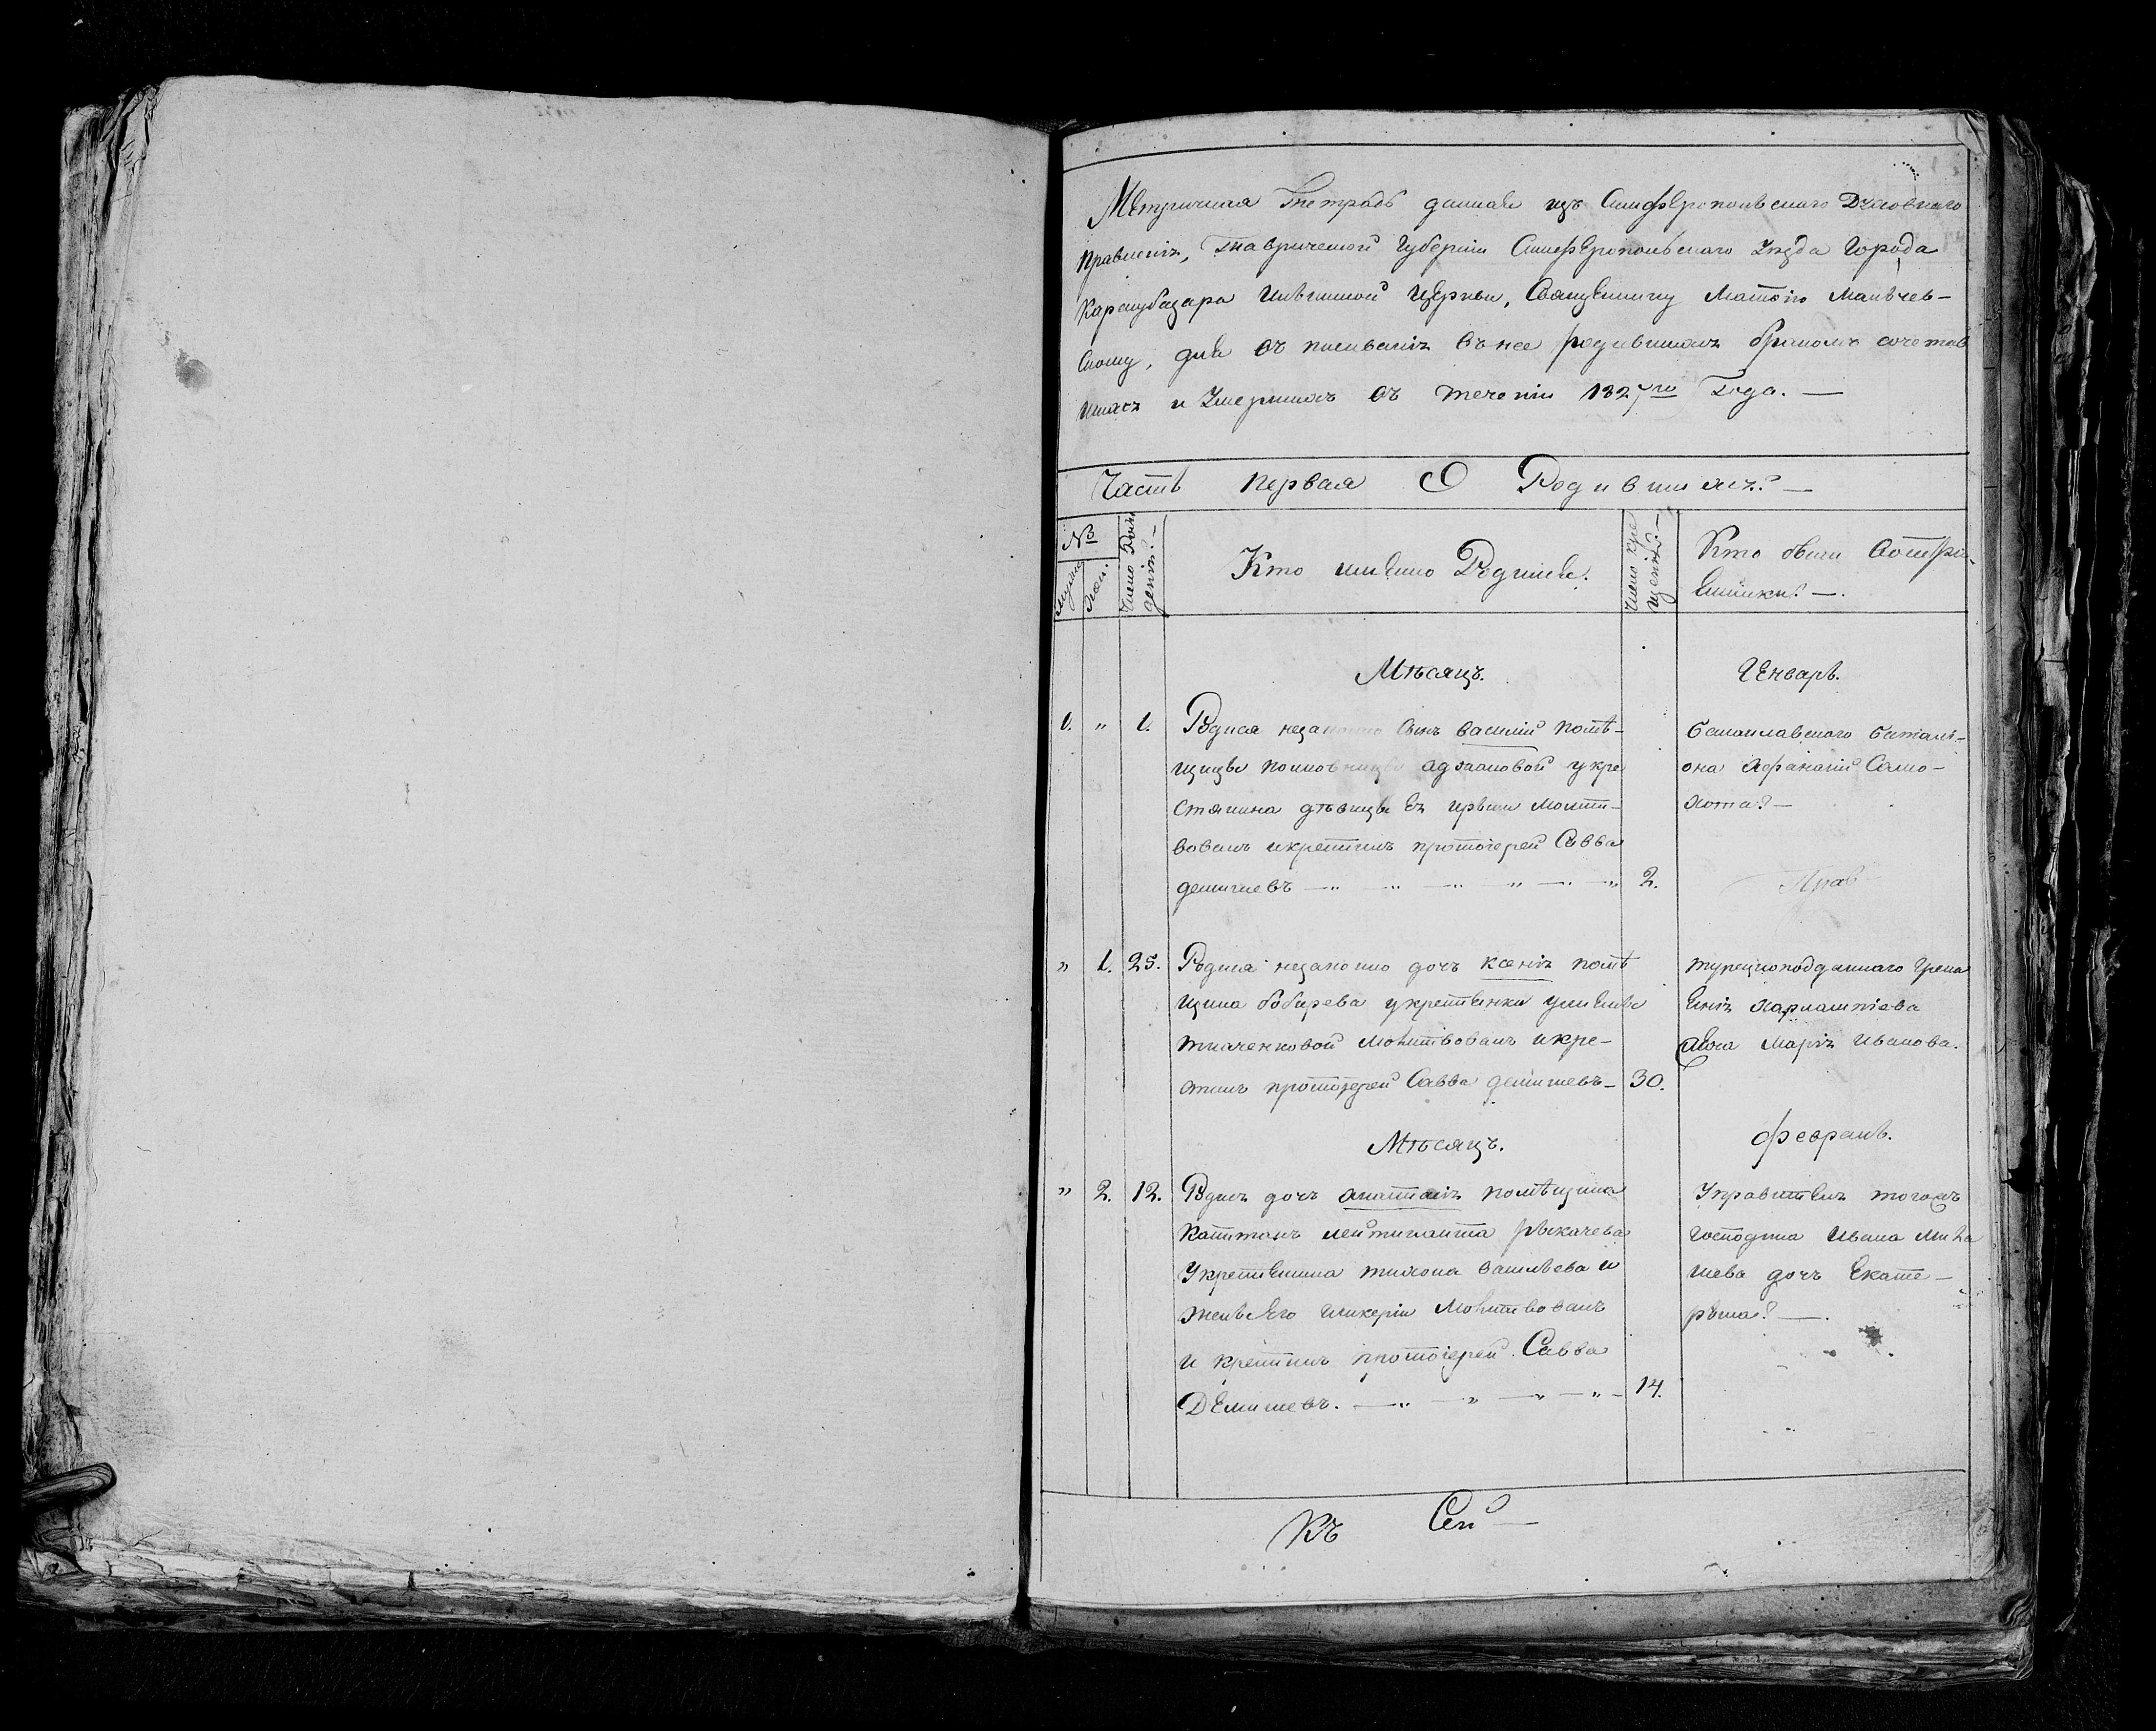 Метричная Тетрадь данная изъ Симферопольскаго Духовнаго
Правленія, Таврической Губерніи Симферопольскаго Уезда Города
Карасубазара Церкви, Священнику Матфію
скому, для въ писыванія въ нее родившихся бракомъ сочетав
шихся и Умершихъ въ теченіи 1827го Года. —
Часть первая О Родившихся. —
№
мужск
жен.
Число Рож
денія. —
Кто имянно Родился.
Число кре
щенія. —
Кто были Воспрі-
емники. —.
Мѣсяцъ.
Генварь.
1. " 1. Родился незаконно сынъ василій помѣ-
щицы полковницы у кре
стянина дѣвицы молит-
вовалъ икрестилъ протоіерей Савва
демишевъ — " — " — " — " 2.
Балаклавскаго баталі-
она Афанасій Само-
хота. —
Прав
" 1. 25. Родилась незаконно дочь ксенія помѣ
щика бобырева укрестьянки
ткаченковой молитвовалъ икре-
стилъ протоіерей Савва демишевъ — 30.
турецкоподданнаго Грека
жена Марія иванова.
Мѣсяцъ.
февраль.
" 2. 12. Родилась дочь анастасія помѣщика
капитанъ лейтинанта рыкачева
Укрестьянина тихона васильева и
женыЕго гликеріи молитвовалъ
и крестилъ протоіерей Савва
Демишевъ. — " — " — " — " — 14.
Управитель тогожъ
Господина Ивана Миха
лева дочь Екате-
рина. —.
Къ Сей —